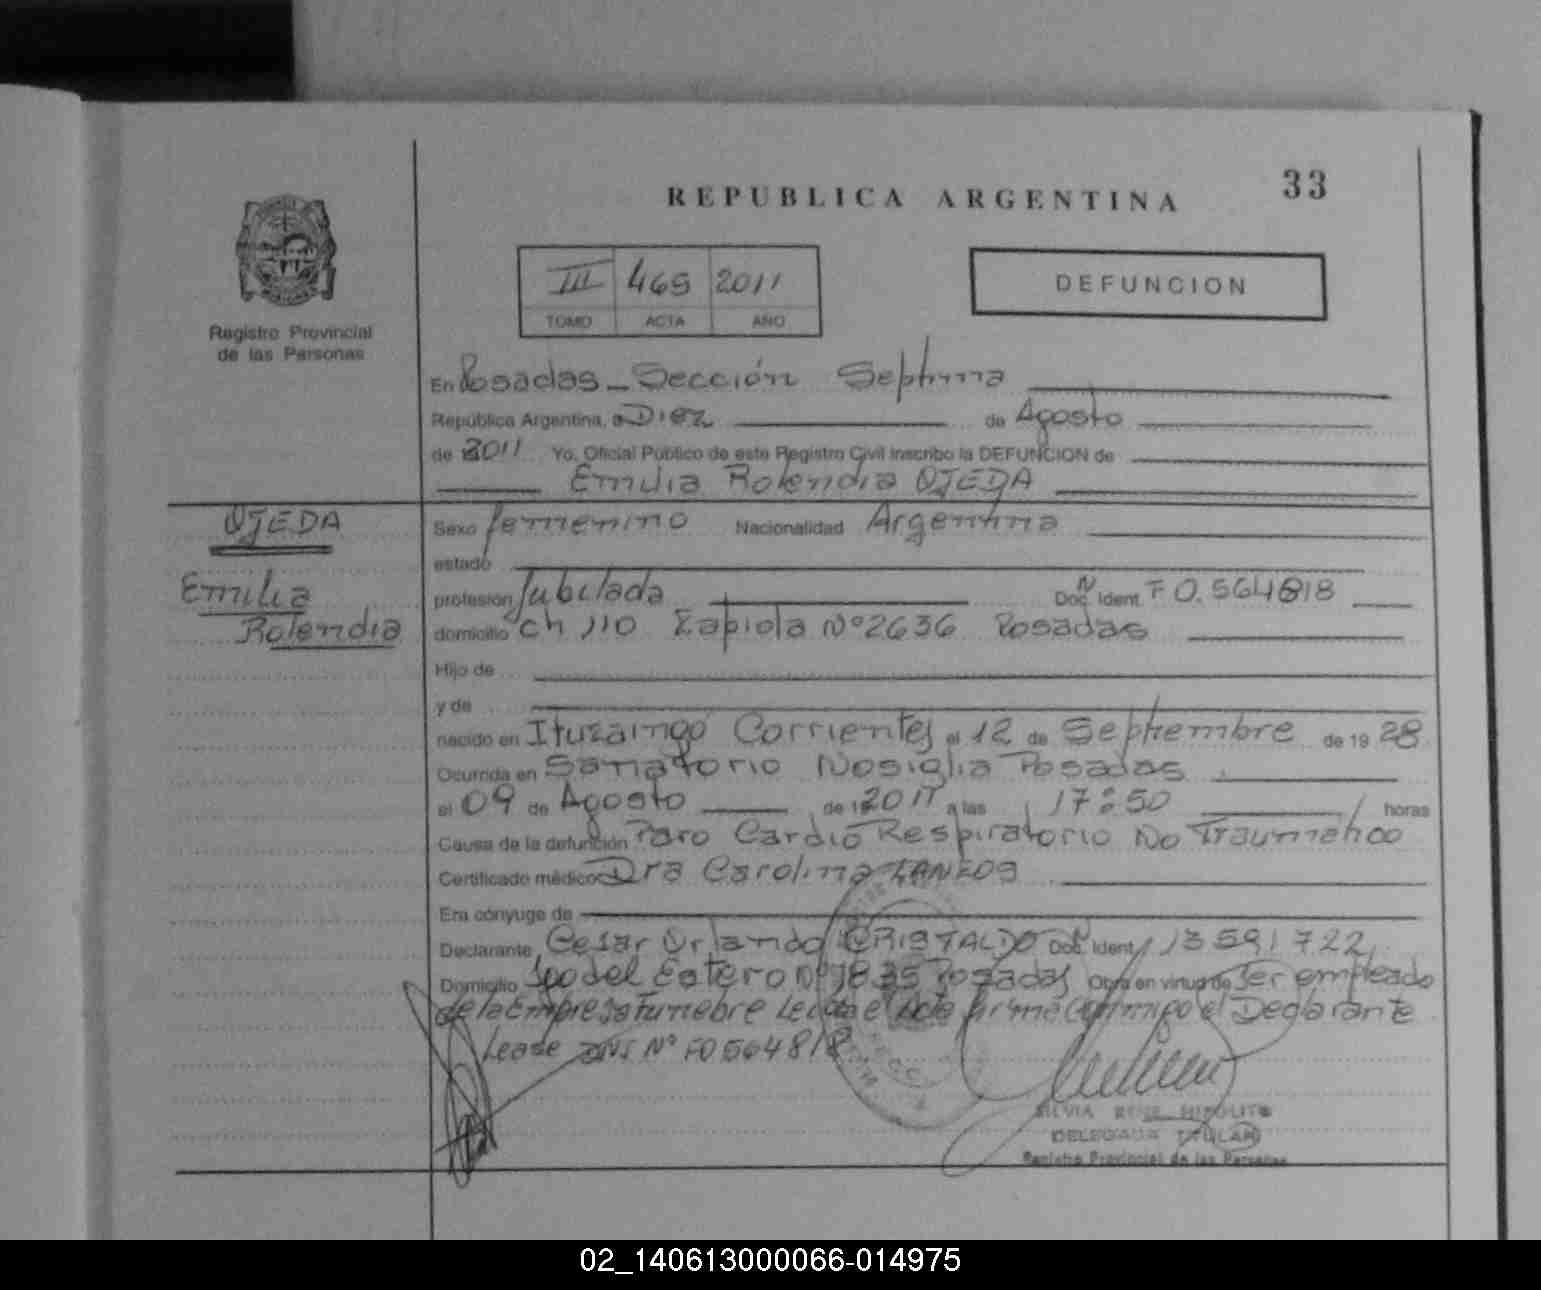 33
REPUBLICA ARGENTINA
III 469 2011
TOMO ACTA AÑO
DEFUNCION
Registro Provincial
de las Personas
En Posadas - Sección Septima
República Argentina, a Diez de Agosto
de 2011 Yo, Oficial Público de este Registro Civil inscribo la DEFUNCION de
Emilia Rolendia OJEDA
OJEDA
Emilia
Rolendia
Sexo femenino Nacionalidad Argentina
estado
profesión Jubilada Doc. Ident. F 0.564818
domicilio Ch 110 Zapiola Nº 2636 Posadas
Hijo de
y de
nacido en Ituzaingó Corrientes el 12 de Septiembre de 19 28
Ocurrida en Sanatorio Nosiglia Posadas
el 09 de Agosto de 2011 a las 17:50 horas
Causa de la defunción Paro Cardio Respiratorio No Traumatico
Certificado médico Dra Carolina
Era cónyuge de
Declarante Cesar Orlando CRISTALDO Doc. Ident. 13591722
Domicilio Sgo del Estero Nº 1835 Posadas Obra en virtud de Ser empleado
de la Empresa Funebre Leida el Acta firma conmigo el Declarante
Lease DNI Nº F0564818
SILVIA HIPOLITO
DELEGADA TITULAR
Registro Provincial de las Personas
02_140613000066-014975